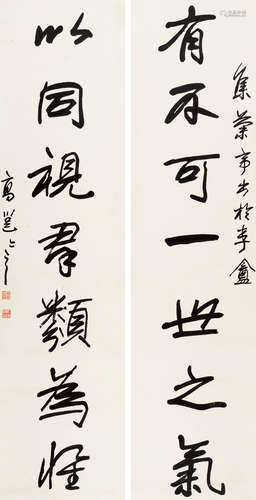 有不可一世之氣
集蘭亭書於李盦
以同視羣類為
高邕之